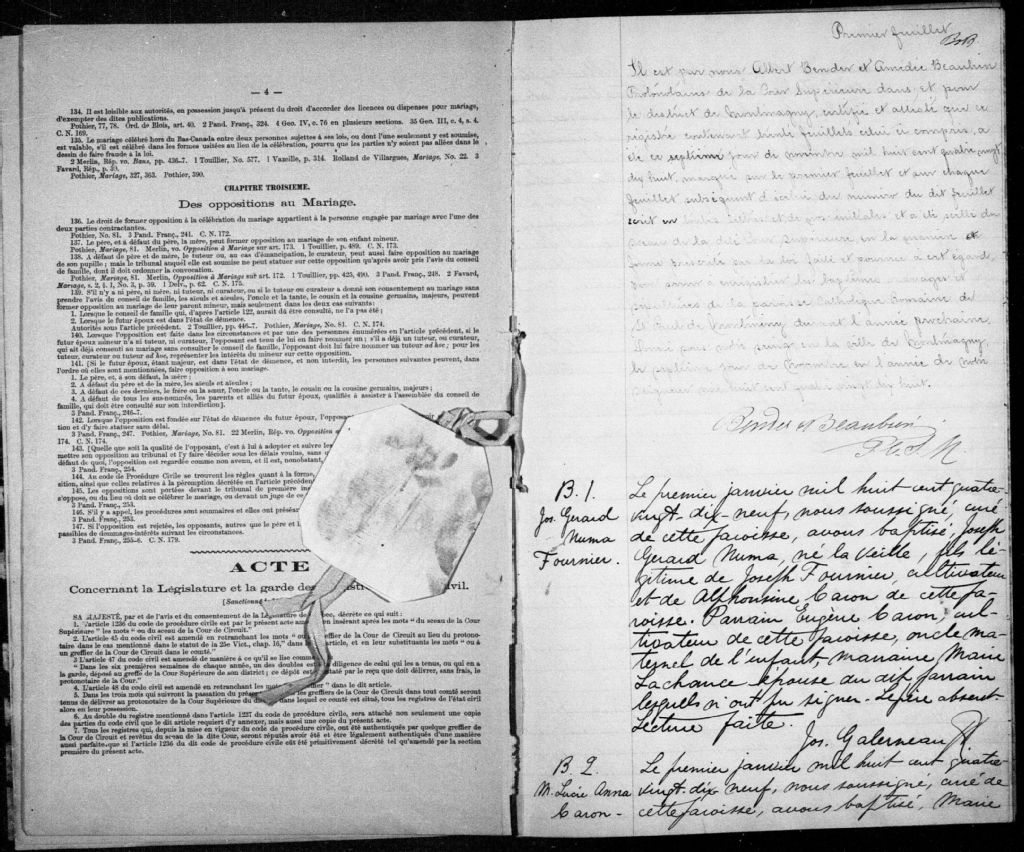 — 4 —
134. Il est loisible aux autorités, en possession jusqu'à présent du droit d'accorder des licences ou dispenses pour mariage,
d'exempter des dites publications.
Pothier, 77, 78. Ord. de Blois, art. 40. 2 Pand. Franç., 324. 4 Geo. IV, c. 76 en plusieurs sections. 35 Geo. III, c. 4, s. 4.
C. N. 169.
135. Le mariage célébré hors du Bas-Canada entre deux personnes sujettes à ses lois, ou dont l'une seulement y est soumise,
est valable, s'il est célébré dans les formes usitées au lieu de la célébration, pourvu que les parties n'y soient pas allées dans le
dessin de faire fraude à la loi.
2 Merlin, Rép. vo. Bans, pp. 436-7. 1 Touillier, No. 577. 1 Vazeille, p. 314. Rolland de Villargues, Mariage, No. 22. 3
Favard, Rép., p. 39.
Pothier, Mariage, 327, 363. Pothier, 390.
CHAPITRE TROISIEME.
Des oppositions au Mariage.
136. Le droit de former opposition à la célébration du mariage appartient à la personne engagée par mariage avec l'une des
deux parties contractantes.
Pothier, No. 81. 3 Pand. Franç., 241. C. N. 172.
137. Le père, et à défaut du père, la mère, peut former opposition au mariage de son enfant mineur.
Pothier, Mariage, 81. Merlin, vo. Opposition à Mariage sur art. 173. 1 Touillier, p. 489. C. N. 173.
138. A défaut de père et de mère, le tuteur ou, au cas d'émancipation, le curateur, peut aussi former opposition au mariage
de son pupille; mais le tribunal auquel elle est soumise ne peut statuer sur cette opposition qu'après avoir pris l'avis du conseil
de famille, dont il doit ordonner la convocation.
Pothier, Mariage, 81. Merlin, Opposition à Mariage sur art. 172. 1 Touillier, pp. 425, 490. 3 Pand. Franç., 248. 2 Favard,
Mariage, s. 2, § 1, No. 3, p. 59. 1 Delv., p. 62. C. N. 175.
139. S'il n'y a ni père, ni mère, ni tuteur, ni curateur, ou si le tuteur ou curateur a donné son consentement au mariage sans
prendre l'avis du conseil de famille, les aïeuls et aïeules, l'oncle et la tante, le cousin et la cousine germains, majeurs, peuvent
former opposition au mariage de leur parent mineur, mais seulement dans les deux cas suivants:
1. Lorsque le conseil de famille qui, d'après l'article 122, aurait dû être consulté, ne l'a pas été;
2. Lorsque le futur époux est dans l'état de démence.
Autorités sous l'article précédent. 2 Touillier, pp. 446-7. Pothier, Mariage, No. 81. C. N. 174.
140. Lorsque l'opposition est faite dans les circonstances et par une des personnes énumérées en l'article précédent, si le
futur époux mineur n'a ni tuteur, ni curateur, l'opposant est tenu de lui en faire nommer un; s'il a déjà un tuteur, ou curateur,
qui ait déjà consenti au mariage sans consulter le conseil de famille, l'opposant doit lui faire nommer un tuteur ad hoc; pour les
tuteur, curateur ou tuteur ad hoc, représenter les intérêts du mineur sur cette opposition.
141. [Si le futur époux, étant majeur, est dans l'état de démence, et non interdit, les personnes suivantes peuvent, dans
l'ordre où elles sont mentionnées, faire opposition à son mariage.
1. Le père, et, à son défaut, la mère;
2. A défaut du père et de la mère, les aïeuls et aïeules;
3. A défaut de ces derniers, le frère ou la sœur, l'oncle ou la tante, le cousin ou la cousine germains, majeurs;
4. A défaut de tous les sus-nommés, les parents et alliés du futur époux, qualifiés à assister à l'assemblée du conseil de
famille, qui doit être consulté sur son interdiction].
3 Pand. Franç., 246-7.
142. Lorsque l'opposition est fondée sur l'état de démence du futur époux, l'opposant
tion et d'y faire statuer sans délai.
3 Pand. Franç., 247. Pothier, Mariage, No. 81. 22 Merlin, Rép. vo. Opposition
174. C. N. 174.
143. [Quelle que soit la qualité de l'opposant, c'est à lui à adopter et suivre les
mettre son opposition au tribunal et l'y faire décider sous les délais voulus, sans
défaut de quoi, l'opposition est regardée comme non avenue, et il est, nonobstant,
3 Pand. Franç., 254.
144. Au code de Procédure Civile se trouvent les règles quant à la forme,
sition, ainsi que celles relatives à la péremption décrétée en l'article précédent
145. Les oppositions sont portées devant le tribunal de première in
s'oppose, ou du lieu où doit se célébrer le mariage, ou devant un juge de ce
3 Pand. Franç., 253.
146. S'il y a appel, les procédures sont sommaires et elles ont présé
3 Pand. Franç., 253.
147. Si l'opposition est rejetée, les opposants, autres que le père et l
passibles de dommages-intérêts suivant les circonstances.
3 Pand. Franç., 255-6. C. N. 179.
ACTE
Concernant la Législature et la garde des
vil.
[Sanctionné
SA MAJESTÉ, par et de l'avis et du consentement de la Législature de
bec, décrète ce qui suit:
1. L'article 1236 du code de procédure civile est par le présent acte
insérant après les mots "du sceau de la Cour
Supérieure" les mots "ou du sceau de la Cour de Circuit."
2. L'article 45 du code civil est amendé en retranchant les mots "ou
effier de la Cour de Circuit ou lieu du protono-
taire dans le cas mentionné dans le statut de la 25e Vict., chap. 16," dans
article, et en leur substituant les mots "ou à
un greffier de la Cour de Circuit dans le comté."
3 L'article 47 du code civil est amendé de manière à ce qu'il se lise comme
"Dans les six premières semaines de chaque année, un des doubles est
diligence de celui qui les a tenus, ou qui en a
la garde, déposé au greffe de la Cour Supérieure de son district; ce dépôt est
par le reçu que doit délivrer, sans frais, le
protonotaire de la Cour."
4. L'article 48 du code civil est amendé en retranchant les mots
dans le dit article.
5. Dans les trois mois qui suivront la passation du présent
les greffiers de la Cour de Circuit dans tout comté seront
tenus de délivrer au protonotaire de la Cour Supérieure du dis
dans lequel ce comté est situé, tous les registres de l'état civil
alors en leur possession.
6. Au double du registre mentionné dans l'article 1237 du code de procédure civile, sera attaché non seulement une copie
des parties du code civil que le dit article requiert d'y annexer, mais aussi une copie du présent acte.
7. Tous les registres qui, depuis la mise en vigueur du code de procédure civile, ont été authentiqués par quelque greffier de
la Cour de Circuit et revêtus du sceau de la dite Cour, seront réputés avoir été et être légalement authentiqués d'une manière
aussi parfaite que si l'article 1236 du dit code de procédure civile eût été primitivement décrété tel qu'amendé par la section
première du présent acte.
Premier feuillet
B&B.
Il est par nous Albert Bender et Amédée Beaubien
Protonotaires de la Cour Supérieure dans et pour
le district de Montmagny, certifié et attesté que ce
régistre contenant trente feuillets celui ci compris, a
été ce septième jour de novembre mil huit cent quatre vingt
dix huit, marqué sur le premier feuillet et sur chaque
feuillet subséquent du numéro du dit feuillet
écrit en toutes lettres et de nos initiales et a été scellé du
sceau de la dite Cour Supérieure, en la manière et
forme prescrite par la loi faite et pourvue à cet égard,
pour servir à enregistrer les baptêmes, mariages et
sépultures de la paroisse catholique romaine de
St Paul de Montminy, durant l'année prochaine
la ville de Montmagny,
le septième jour de Novembre en l'année de notre
Seigneur mil huit cent quatre vingt dix huit.
Bender et Beaubien
P. C. S. M
B. 1.
Jos. Gerard
Numa
Fournier.
Le premier janvier mil huit cent quatre-
vingt-dix-neuf, nous soussigné, curé
de cette paroisse, avons baptisé, Joseph
Gerard Numa, né la veille, fils lé-
gitime de Joseph Fournier, cultivateur
et de Alphonsine Caron de cette pa-
roisse. Parrain Eugène Caron, cul-
tivateur de cette paroisse, oncle ma-
ternel de l'enfant, marraine Marie
Lachance épouse du dit parrain
lesquels n'ont pu signer. Le père absent.
Lecture faite.
Jos. Galerneau Ptr.
B. 2.
M. Lucie Anna
Caron-
Le premier janvier mil huit cent quatre-
vingt-dix-neuf, nous soussigné, curé de
cette paroisse, avons baptisé, Marie